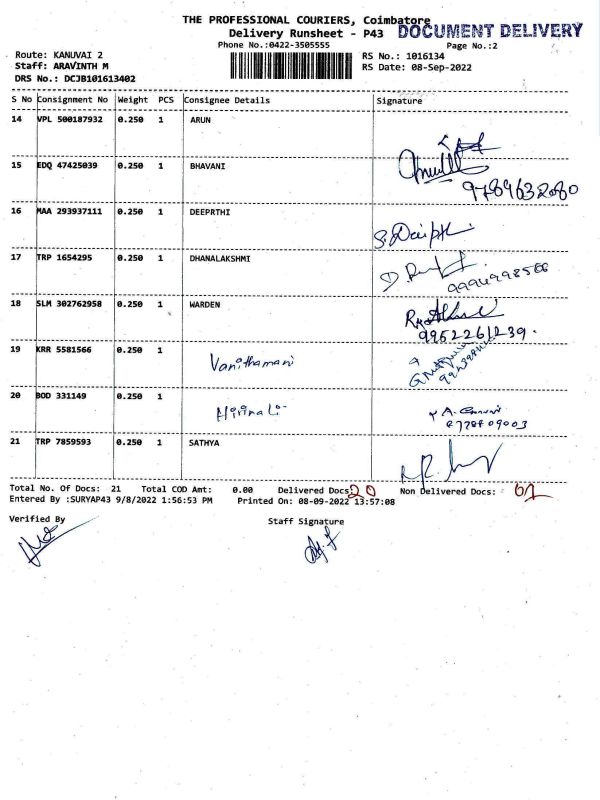 THE PROFESSIONAL COURIERS, Coimbatore
DOCUMENT DELIVERY
Delivery Runsheet - P43
Phone No.:0422-3505555
Page No.:2
Route: KANUVAI 2
RS No.: 1016134
Staff: ARAVINTH M
RS Date: 08-Sep-2022
DRS No.: DCJB101613402
S No Consignment No Weight PCS Consignee Details Signature
14 VPL 500187932 0.250 1 ARUN
15 EDQ 47425039 0.250 1 BHAVANI
9789632080
16 MAA 293937111 0.250 1 DEEPRTHI
17 TRP 1654295 0.250 1 DHANALAKSHMI
9994998566
18 SLM 302762958 0.250 1 WARDEN
9952261239.
19 KRR 5581566 0.250 1 Vanithamani
20 BOD 331149 0.250 1
21 TRP 7859593 0.250 1 SATHYA
Total No. Of Docs: 21 Total COD Amt: 0.00 Delivered Docs: 20 Non Delivered Docs: 01
Entered By :SURYAP43 9/8/2022 1:56:53 PM Printed On: 08-09-2022 13:57:08
Verified By Staff Signature